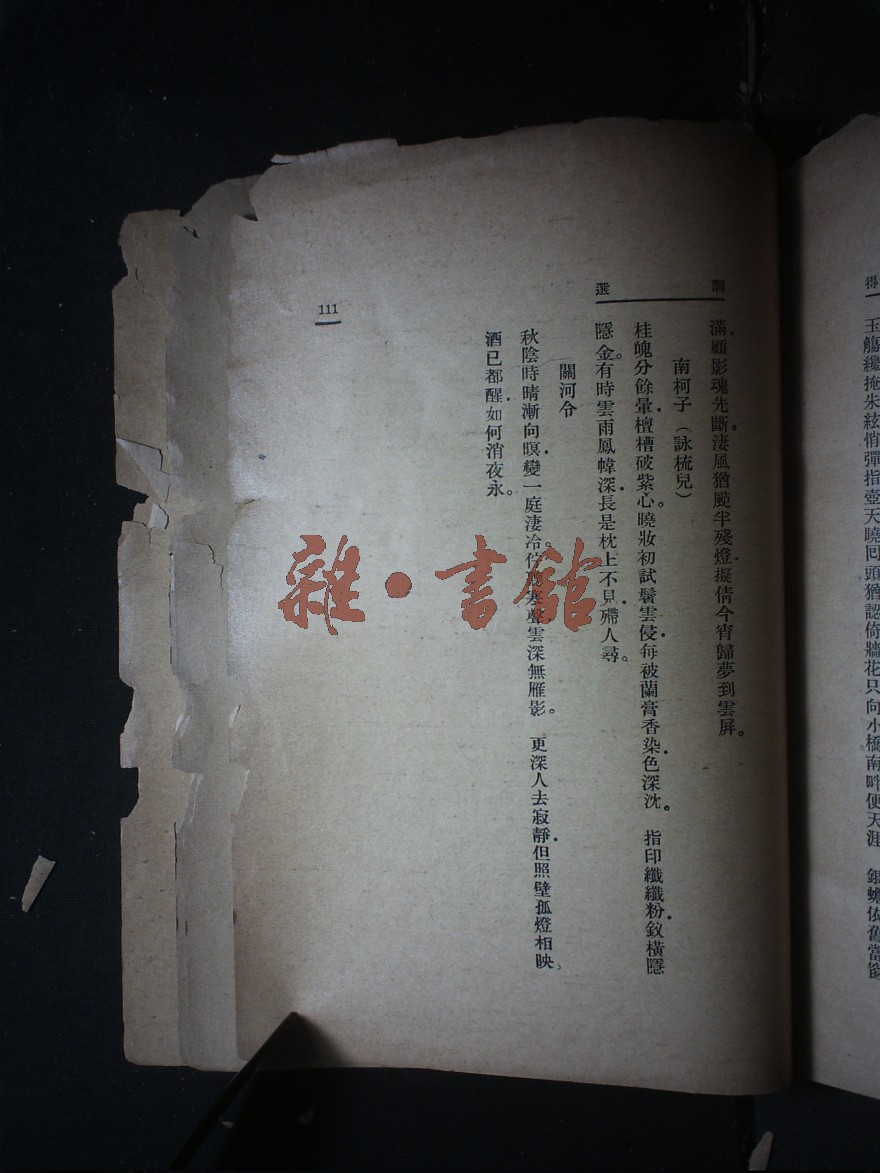 得
玉觴纔掩朱絃悄彈指壺天曉回頭猶認倚牆花只向小橋南畔便天涯　銀蟾依舊當窗
選
滿．顧影魂先斷。淒風猶颭半殘燈．擬倩今宵歸夢到雲屏。
南柯子（詠梳兒）
桂魄分餘暈．檀槽破紫心。曉妝初試鬢雲侵．每被蘭膏香染．色深沈。　指印纖纖粉．釵橫隱
隱金。有時雲雨鳳幃深．長是枕上不見．殢人尋。
關河令
秋陰時晴漸向暝．變一庭淒冷。佇聽寒聲雲深無雁影。　更深人去寂靜．但照壁孤燈相映。
酒已都醒．如何消夜永。
111
雜·書館